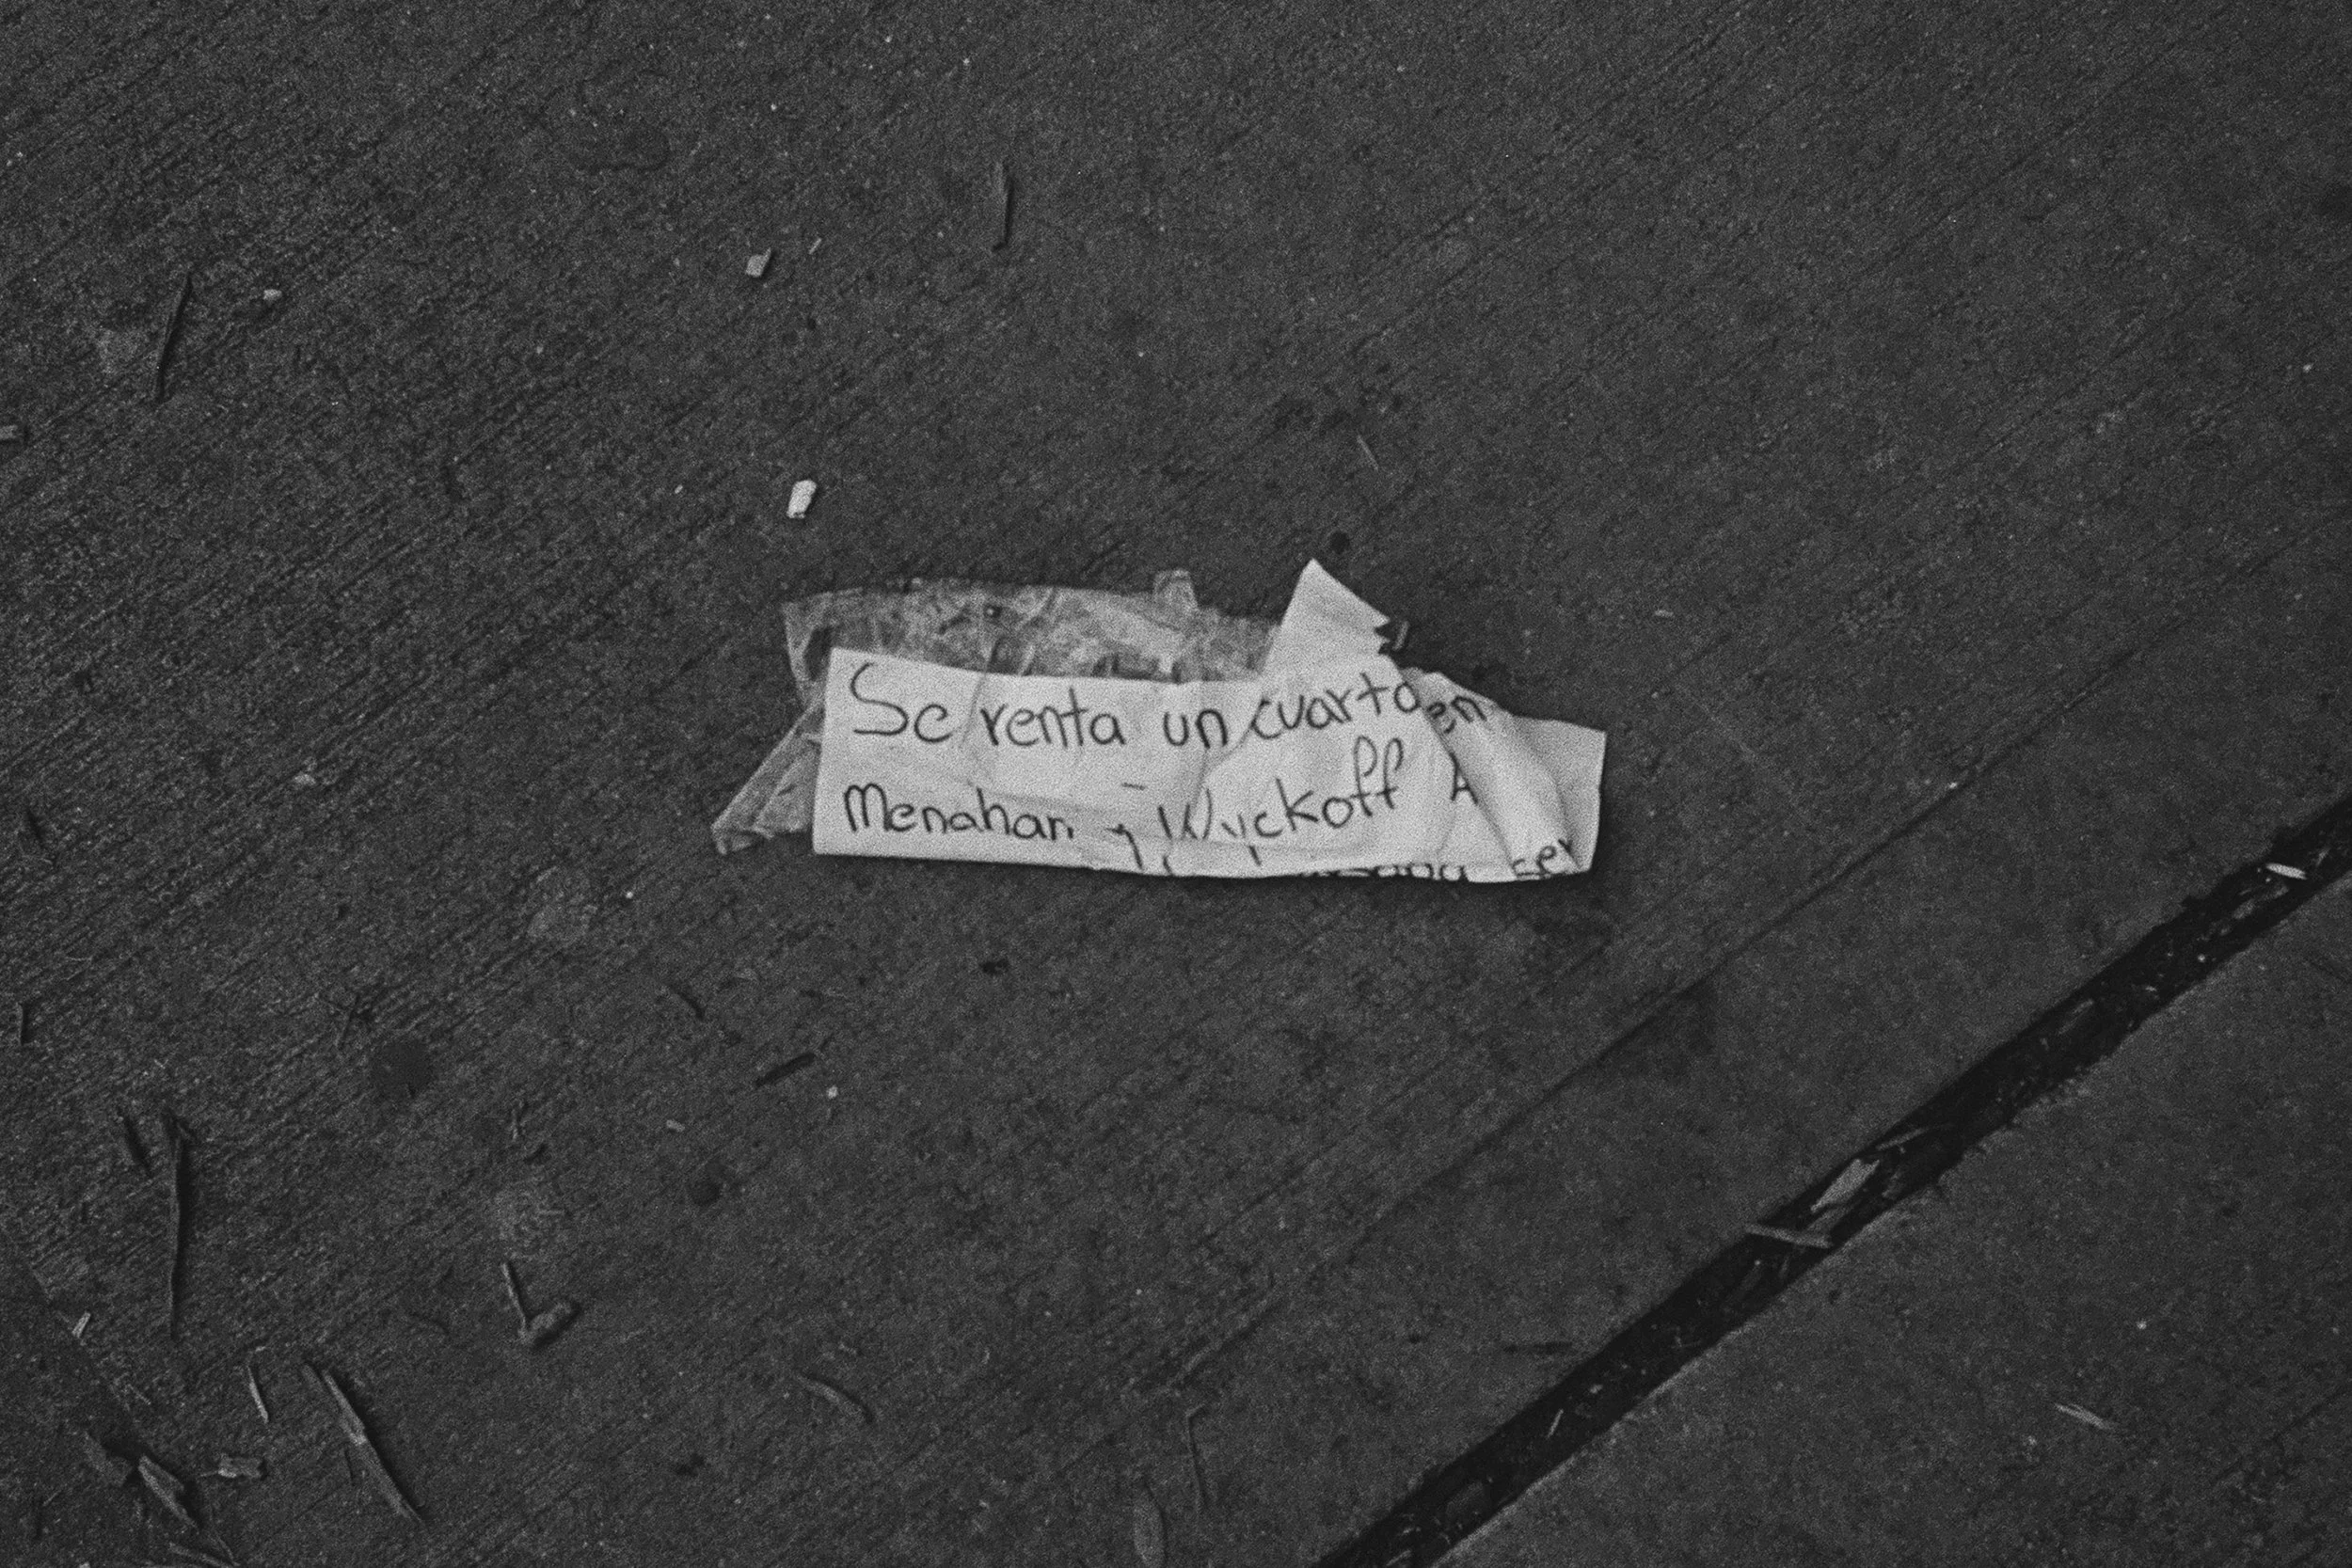 Se renta un cuarto en
Menahan y Wyckoff A
ser